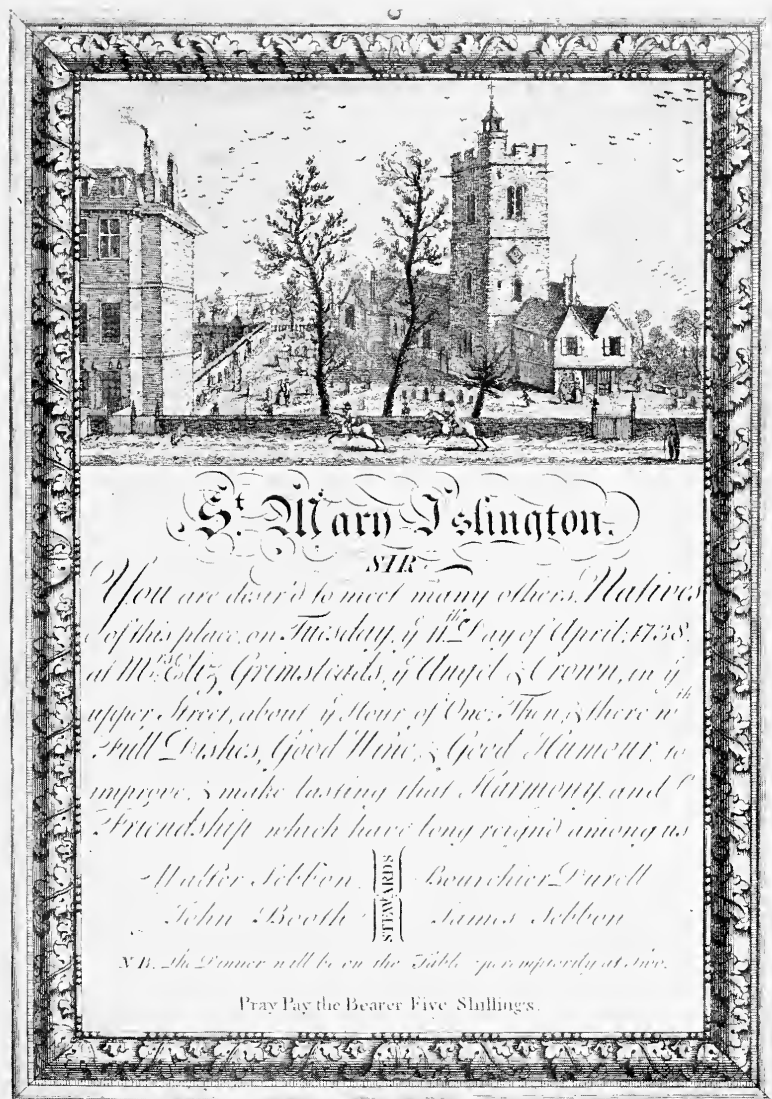 St. Mary Islington.
SIR
You are desir'd to meet many others, Natives
of this place, on Tuesday, ye 11th Day of April, 1738.
at Mrs. Eliz Grimsteads, ye Angel & Crown, in ye
upper Street, about ye Hour of One; Then, & there wth
Full Dishes, Good Wine, & Good Humour, to
improve, & make lasting that Harmony, and
Friendship which have long reign'd among us
Walter Sebbon, STEWARDS Bourchier Durell
John Booth James Sebbon
NB. The Dinner will be on the Table peremptorily at Two.
Pray Pay the Bearer Five Shillings.